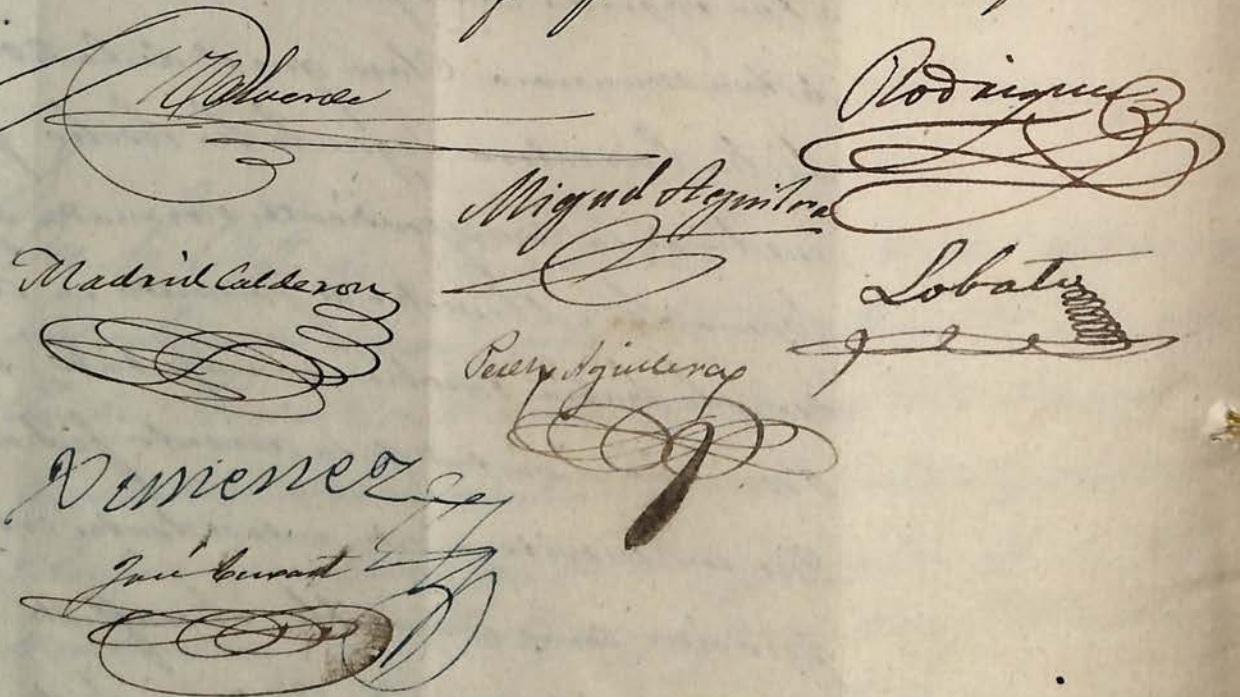 Valverde
Rodriguez
Miguel Aguilera
Madrid Calderon
Lobato
Perez Aguilera
Ximenez
José